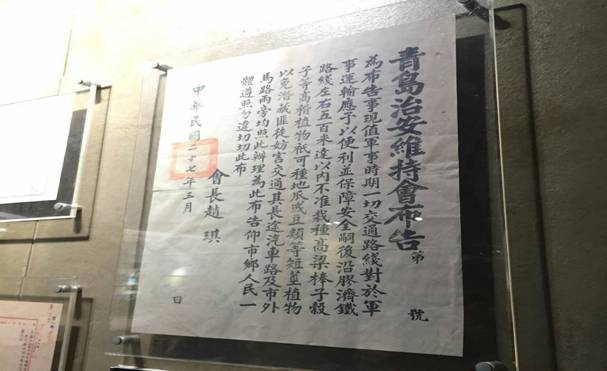 青島治安維持會布告 第 號
為布告事現值軍事時期一切交通路綫對於軍
事運輸應予以便利並保障安全嗣後沿膠濟鐵
路綫左右五百米達以內不准栽種高粱棒子穀
子等高稍植物祇可種地瓜或豆類等短莖植物
以免潛藏匪徒妨害交通其長途汽車路及市外
馬路兩旁均照此辦理為此布告仰市鄉人民一
體遵照勿違切切此布
會長趙琪
中華民國二十七年三月 日